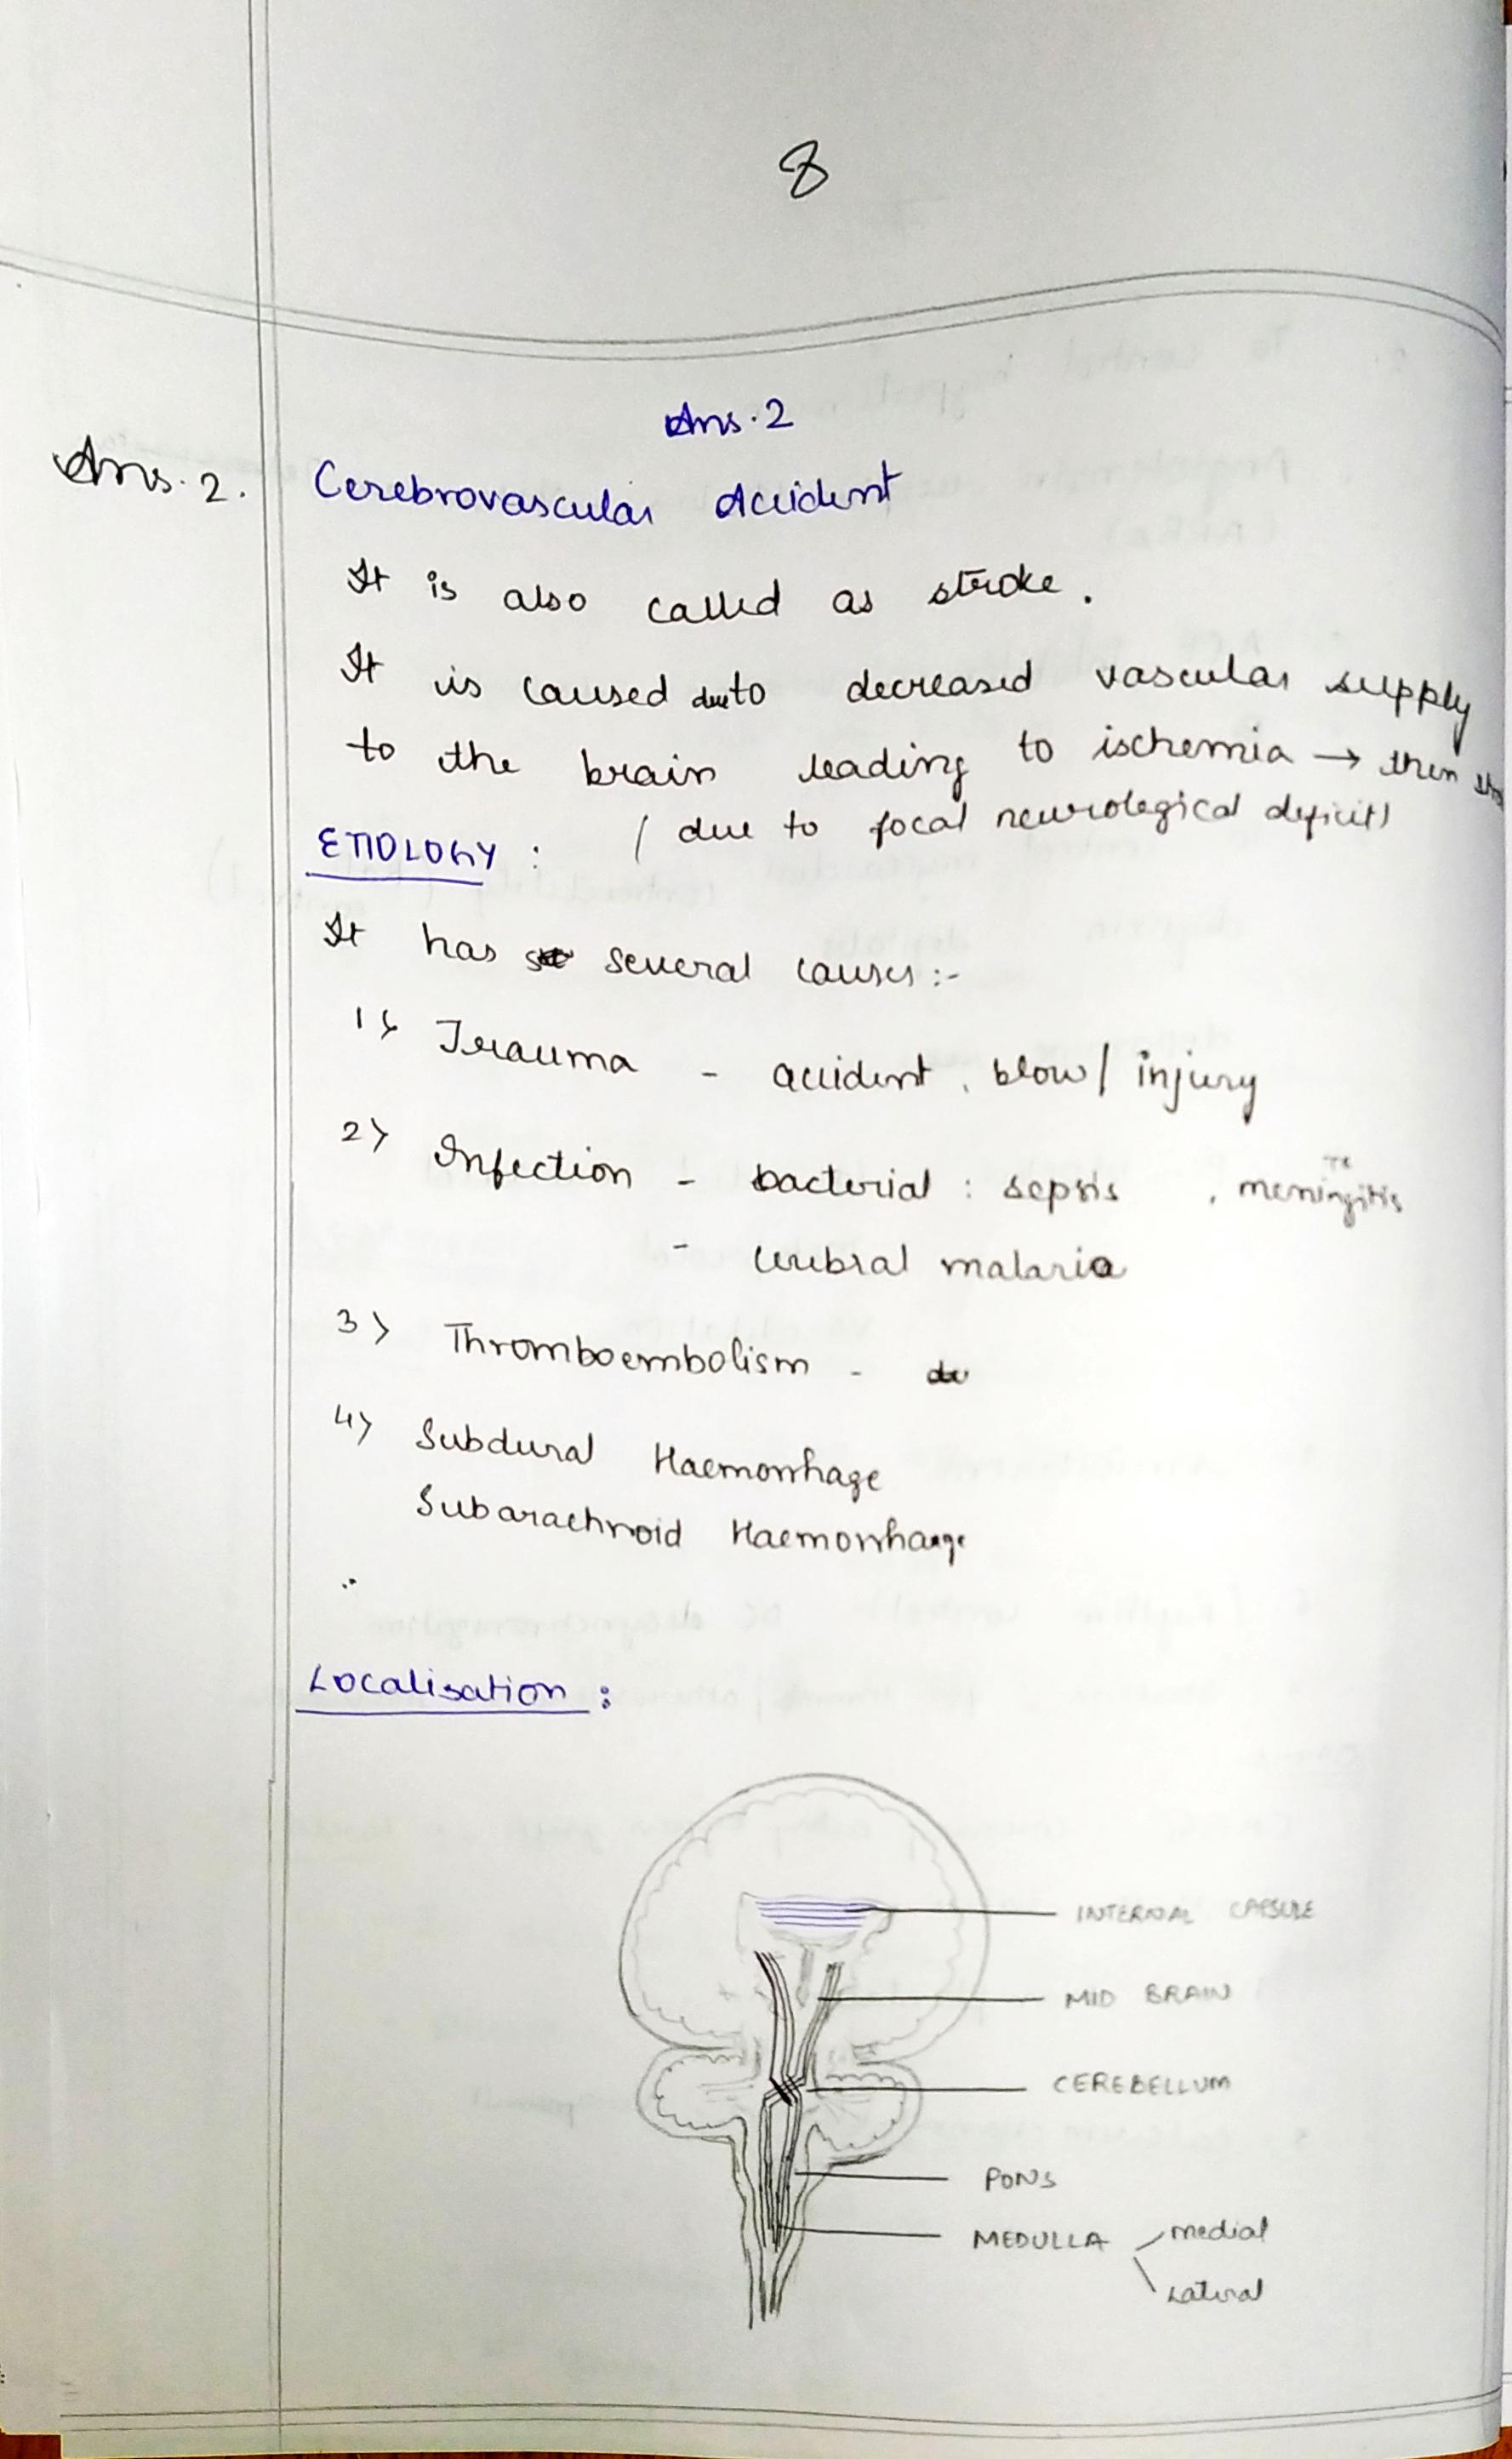 8
Ans.2
Ans.2. Cerebrovascular Accident
It is also called as stroke.
It is caused due to decreased vascular supply
to the brain leading to ischemia → then
ETIOLOGY : ( due to focal neurological deficit)
It has several causes :-
1> Trauma - accident, blow/ injury
2> Infection - bacterial : sepsis , meningitis
- cerebral malaria
3> Thromboembolism -
4> Subdural Haemorrhage
Subarachnoid Haemorrhage
Localisation :
INTERNAL CAPSULE
MID BRAIN
CEREBELLUM
PONS
MEDULLA medial
Lateral